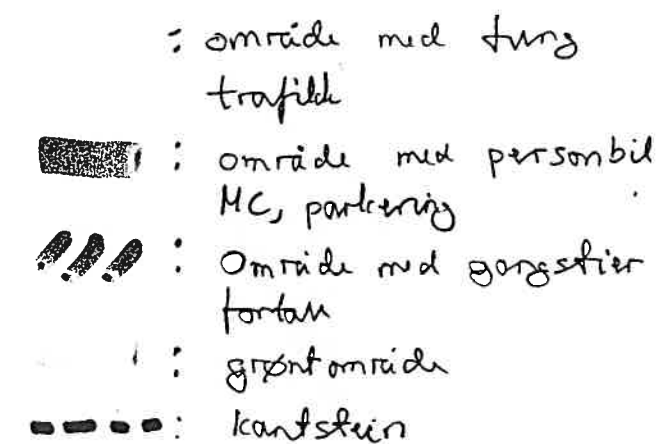 : område med tung
trafikk
: område med personbil
MC, parkering
: Område med gangstier
fortau
: grøntområde
: kantstein